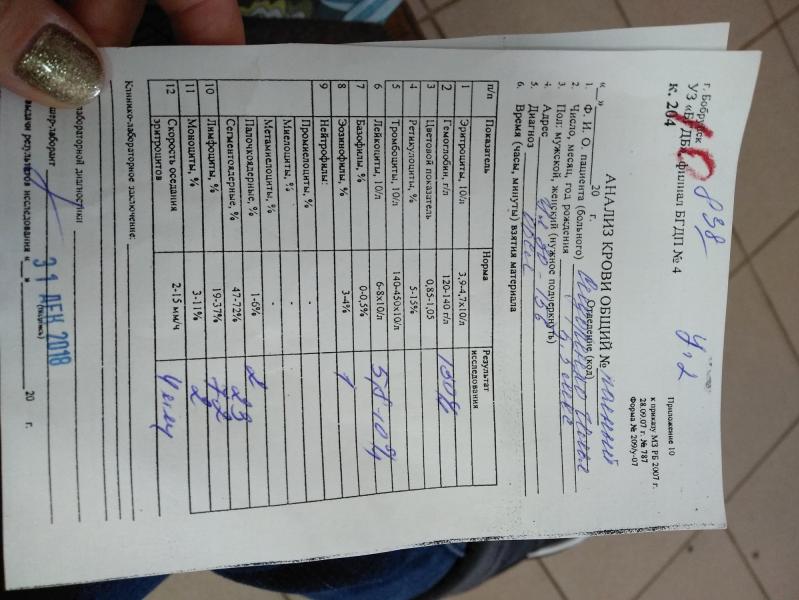 г. Бобруйск
УЗ «БГДБ» филиал БГДП № 4
к. 204
838
4,2
Приложение 10
к приказу МЗ РБ 2007 г.
28.09.07 г. № 787
Форма № 209/у-07
АНАЛИЗ КРОВИ ОБЩИЙ №
«__» ______ 20 г.
Отделение (код)
1. Ф. И. О. пациента (больного)
2. Число, месяц, год рождения
3. Пол: мужской, женский (нужное подчеркнуть)
4. Адрес
5. Диагноз
6. Время (часы, минуты) взятия материала
п/п Показатель Норма Результат исследования
1 Эритроциты, 10/л 3,9-4,7х10/л
2 Гемоглобин, г/л 120-140 г/л
3 Цветовой показатель 0,85-1,05
4 Ретикулоциты, % 5-15%
5 Тромбоциты, 10/л 140-450х10/л
6 Лейкоциты, 10/л 6-8х10/л 5,8
7 Базофилы, % 0-0,5%
8 Эозинофилы, % 3-4% 1
9 Нейтрофилы:
Промиелоциты, % -
Миелоциты, % -
Метамиелоциты, % -
Палочкоядерные, % 1-6% 2
Сегментоядерные, % 47-72% 23
10 Лимфоциты, % 19-37% 72
11 Моноциты, % 3-11% 2
12 Скорость оседания эритроцитов 2-15 мм/ч 4 мм/ч
Клинико-лабораторное заключение:
лабораторной диагностики
шер-лаборант
(подпись)
выдачи результатов исследования «__» 20 г.
31 ДЕК 2018